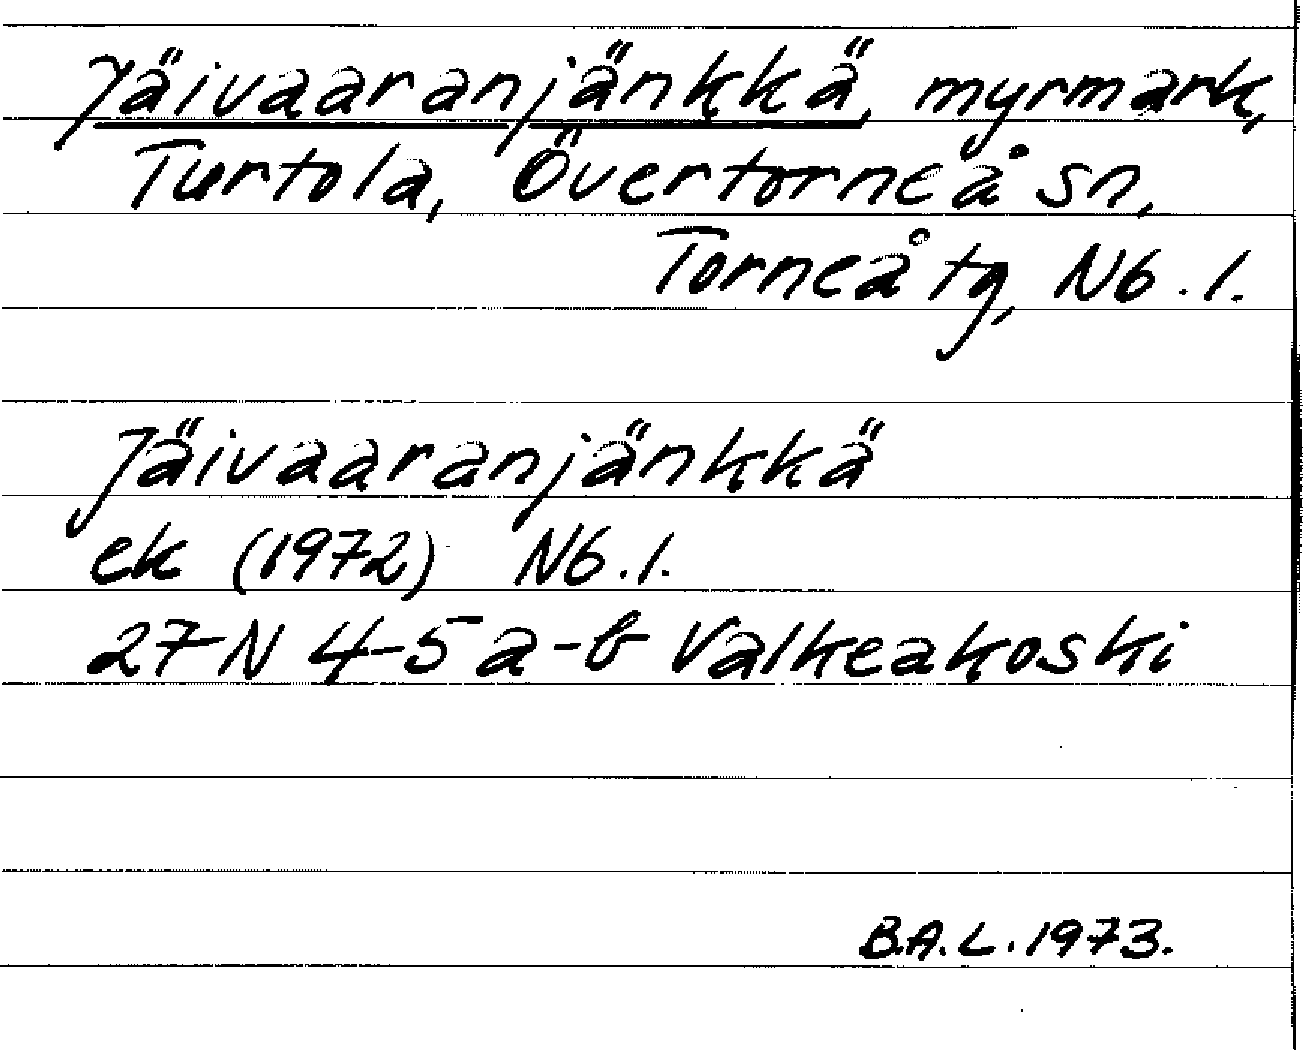 Jäivaaranjänkkä, myrmark,
Turtola, Övertorneå sn,
Torneå tg, N6.1.
Jäivaaranjänkkä
ek (1972) N6.1.
27 N 4-5 a-b Valkeakoski
B.A.L. 1973.